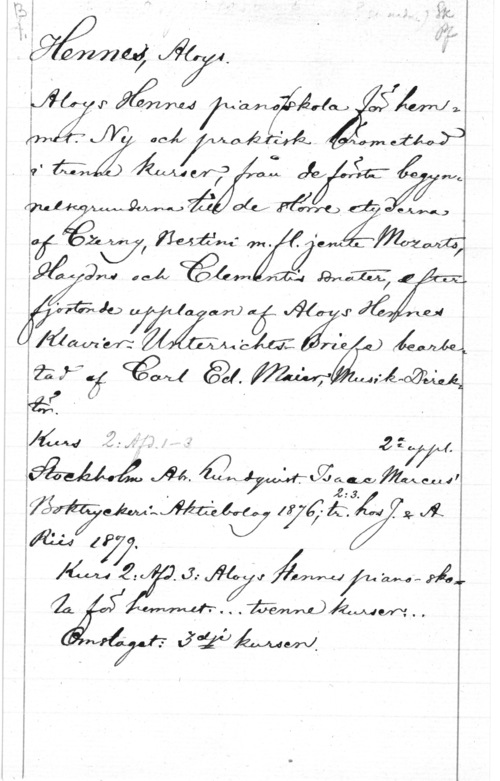 B
Sk
Pf
Hennes, Aloys.
Aloys Hennes pianoskola för hem=
met. Ny och praktisk läromethod
i trenne kurser, från de första begyn=
nelsegrunderna till de större etyderna
af Czerny, Bertini m.fl. jemte Mozarts,
Haydns och Clementis sonater, efter
fjortonde upplagan af Aloys Hennes
Klavier-Unterrichts-Briefe bearbe=
tad af Carl Ed. Maier, Musik-Direk=
tör.
Kurs 2: Afd. 1-3 2a uppl.
Stockholm Ab. Lundquist. Isaac Marcus'
2:3.
Boktryckeri-Aktiebolag 1876; tr. hos J. & A.
Riis 1879.
Kurs 2: Afd. 3: Aloys Hennes piano-sko=
la för hemmet... tvenne kurser:..
Omslaget: 3dje kursen.